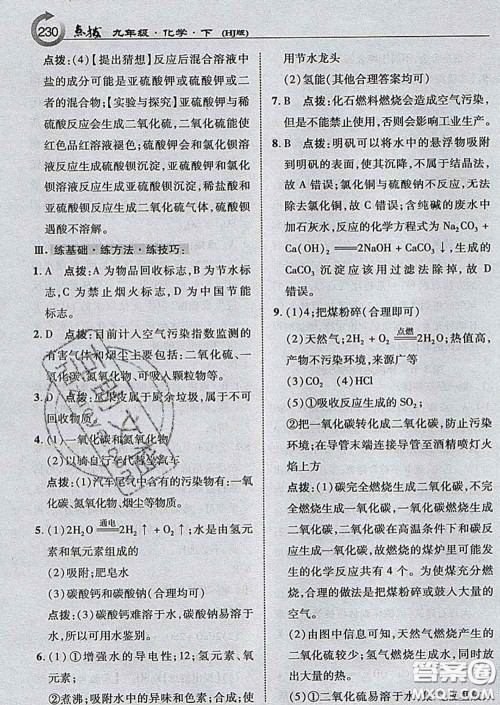 230 点拨 九年级·化学·下 (HJ版)
点拨:(4)【提出猜想】反应后混合溶液中
盐的成分可能是亚硫酸钾或硫酸钾或二
者的混合物;【实验与探究】亚硫酸钾与稀
硫酸反应会生成二氧化硫,二氧化硫能使
红色品红溶液褪色;硫酸钾会和氯化钡溶
液反应生成硫酸钡沉淀,亚硫酸钾和氯化
钡溶液反应生成亚硫酸钡沉淀,亚硫酸钡
遇酸反应生成二氧化硫气体,硫酸钡
遇酸不溶解。
Ⅲ. 练基础·练方法·练技巧:
1. A 点拨:A为物品回收标志,B为节水标
志,C为禁止烟火标志,D为中国节能
标志。
2. D 点拨:目前计入空气污染指数监测的
有害气体和烟尘主要包括:二氧化硫、一
氧化碳、氮氧化物、可吸入颗粒物等。
3. D 点拨:瓜果皮属于厨余垃圾,属于不可
回收物质。
4. (1)一氧化碳和氮氧化物
(2)以骑自行车代替乘汽车
点拨:(1)汽车尾气中含有的污染物有:一
氧化碳、氮氧化物、烟尘等物质。
5. (1)2H₂O 通电 2H₂↑+O₂↑;水是由氢元
素和氧元素组成的
(2)吸附;肥皂水
(3)碳酸钙和碳酸钠(合理均可)
点拨:(3)碳酸钙难溶于水,碳酸钠易溶于
水,所以它们的溶解性不同。
6. (1)①增强水的导电性;12;氢元素、氧
元素
②煮沸;吸附水中的异味和色素;会,使
用节水龙头
(2)氢能(其他合理答案均可)
7. B 点拨:化石燃料燃烧会造成空气污染,
但不能禁止使用,否则会影响工业生产。
8. B 点拨:明矾可以将水中的悬浮物吸附
到明矾的表面,使其沉降,不属于结晶法,
故A错误;氯化铜与硫酸钠不反应,无法
除去氯化铜,故C错误;含纯碱的废水中
加石灰水,反应的化学方程式为Na₂CO₃
+Ca(OH)₂══2NaOH+CaCO₃↓,生成的
CaCO₃沉淀应该用过滤法除掉,故D
错误。
9. (1)4;把煤粉碎(合理即可)
(2)天然气;2H₂+O₂ 点燃 2H₂O;热值高,
不污染环境,来源广等
(3)CO₂ (4)HCl
(5)①吸收反应生成的SO₂
②把一氧化碳转化成二氧化碳,防止污染
环境;在导管末端连接导管至酒精喷灯火
焰上方
点拨:(1)碳完全燃烧生成二氧化碳,不完
全燃烧生成一氧化碳,一氧化碳燃烧生成
二氧化碳,二氧化碳在高温条件下与碳反
应生成一氧化碳,故燃烧的煤炉里可能发
生的化学反应共有4个。为使煤充分燃
烧,合理的做法是把煤粉碎或者鼓入大量
的空气。
(2)由图中信息可知,天然气燃烧产生的
二氧化硫较少;氢气燃烧产物是水。
(5)①二氧化硫易溶于水,
答案圈
MXQE.COM